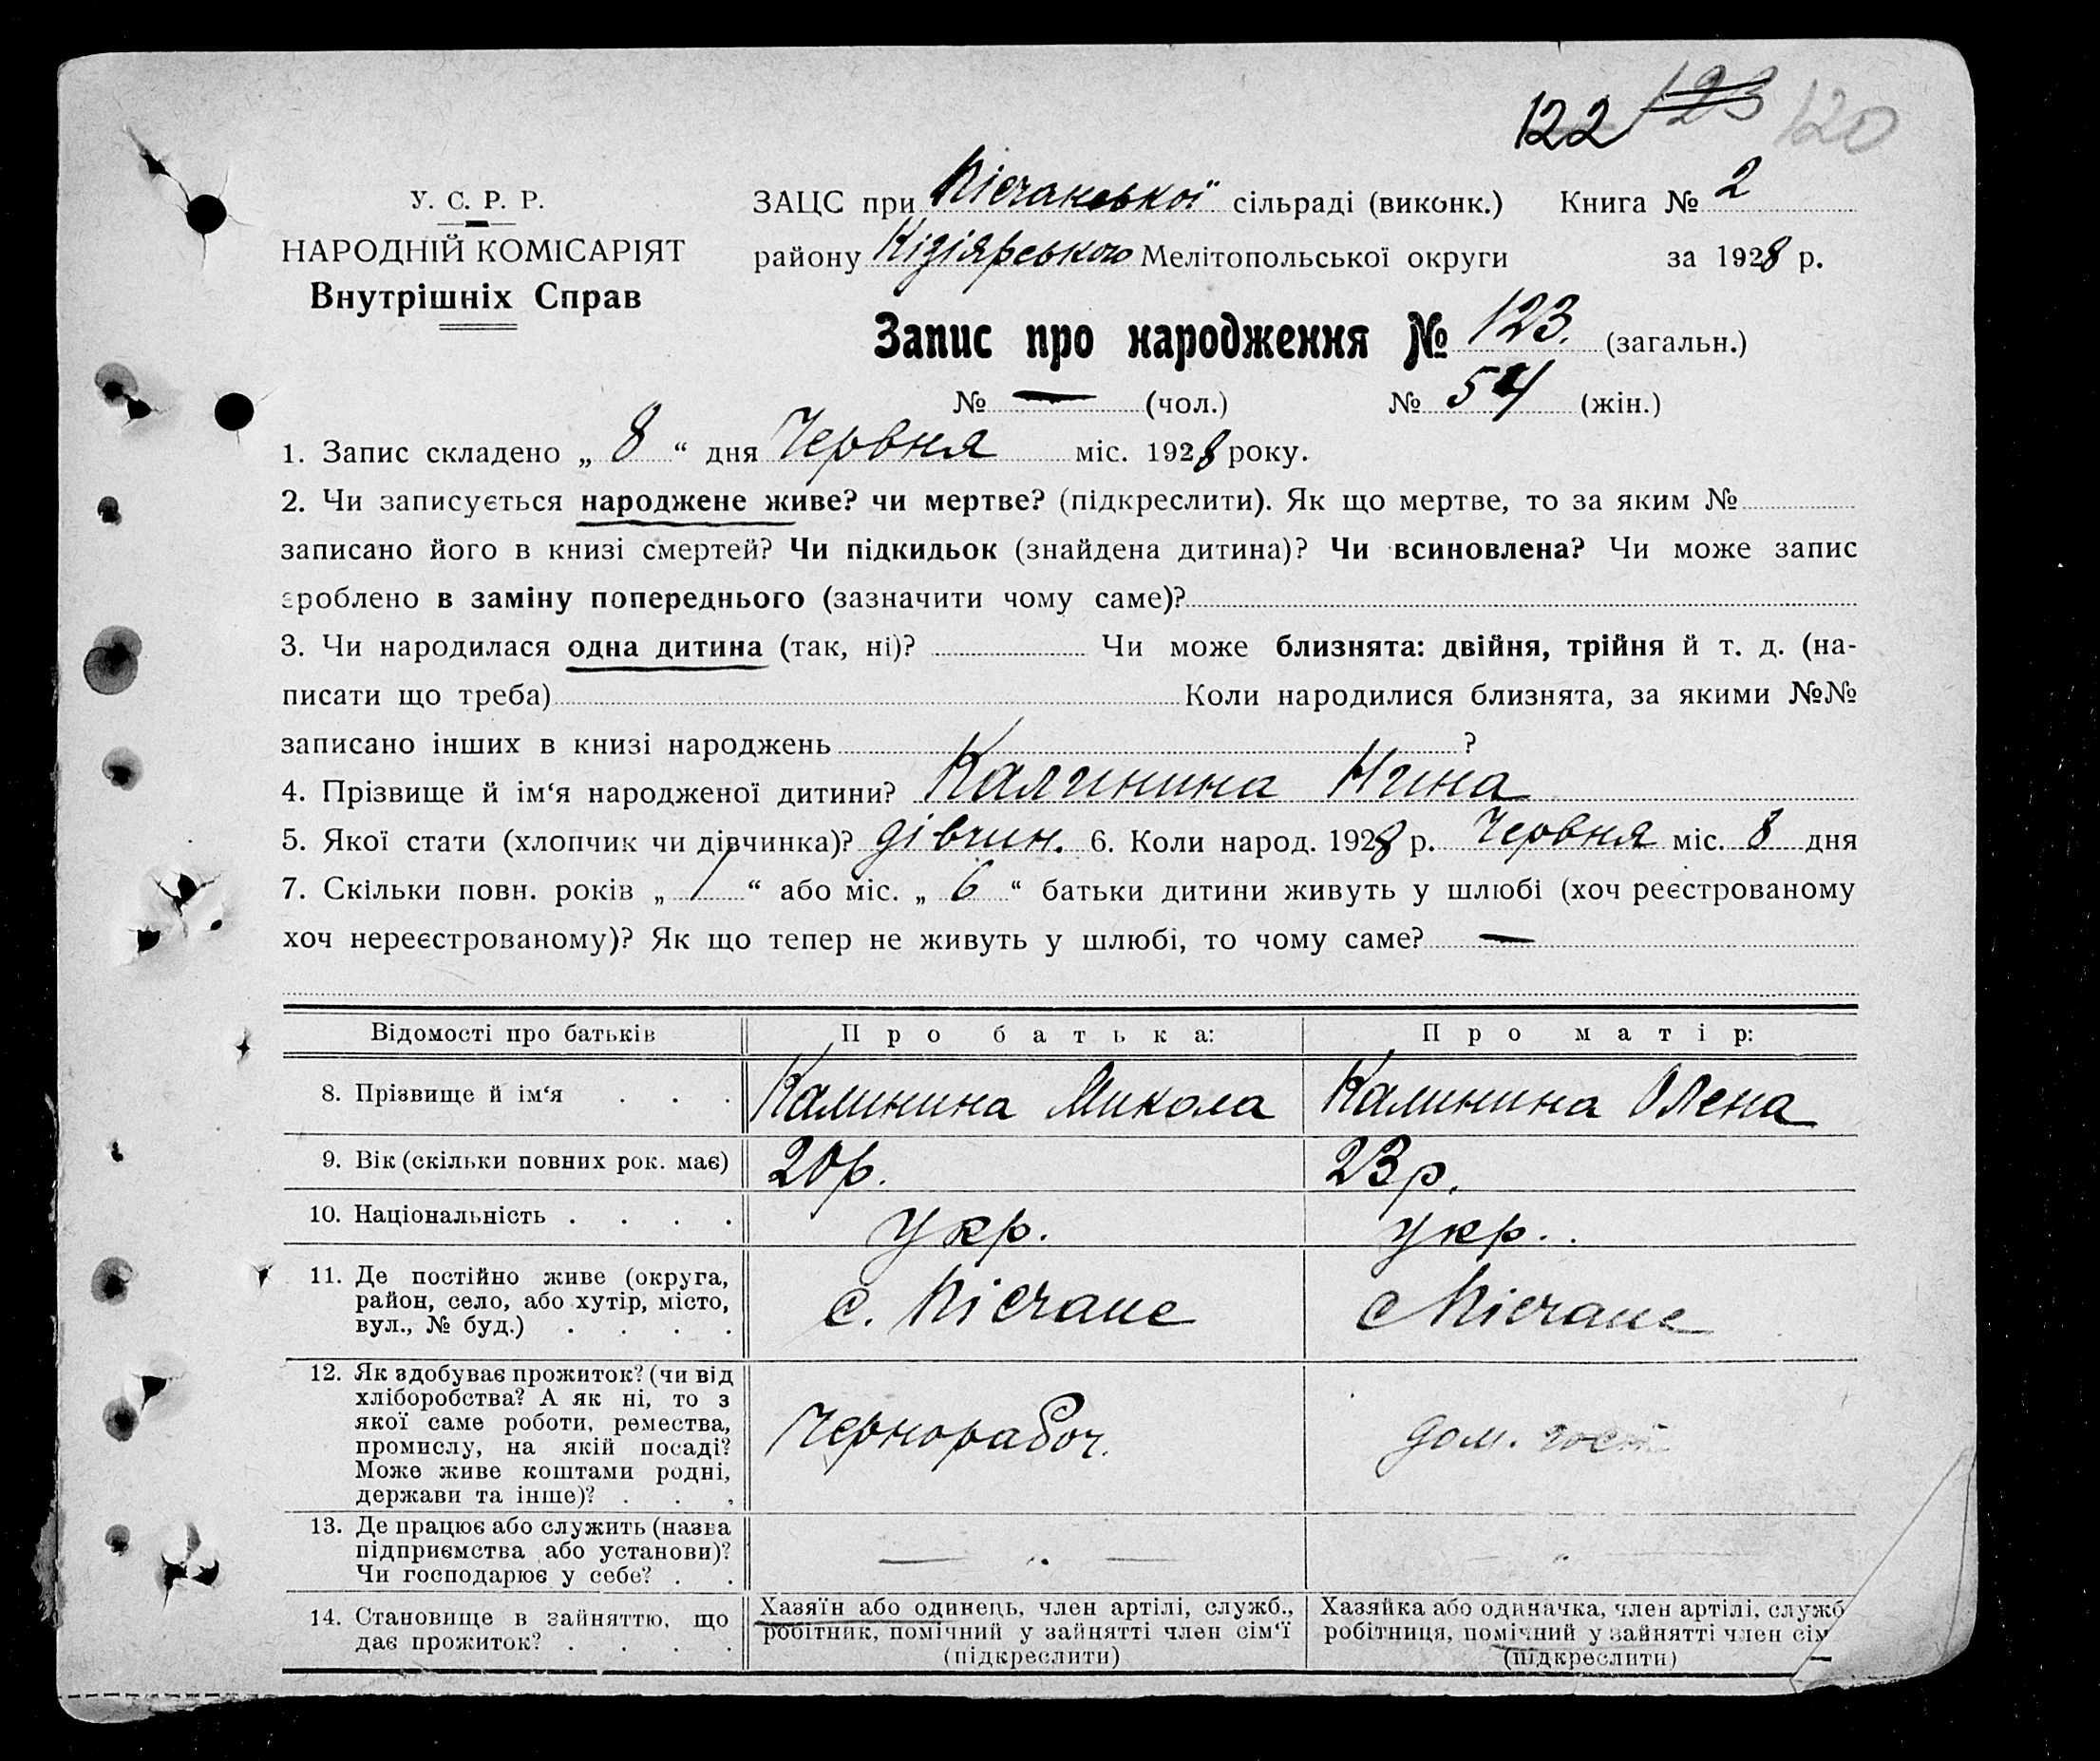 122 123 120
У. С. Р. Р.
НАРОДНІЙ КОМІСАРІЯТ
Внутрішніх Справ
ЗАЦС при Пісчанської сільраді (виконк.) Книга № 2
району Кізіярського Мелітопольської округи за 1928 р.
Запис про народження № 123. (загальн.)
№ — (чол.) № 54 (жін.)
1. Запис складено „ 8 “ дня Червня міс. 1928 року.
2. Чи записується народжене живе? чи мертве? (підкреслити). Як що мертве, то за яким №
записано його в книзі смертей? Чи підкидьок (знайдена дитина)? Чи всиновлена? Чи може запис
зроблено в заміну попереднього (зазначити чому саме)?
3. Чи народилася одна дитина (так, ні)? Чи може близнята: двійня, трійня й т. д. (на-
писати що треба) Коли народилися близнята, за якими №№
записано інших в книзі народжень ?
4. Прізвище й ім‘я народженої дитини? Калинина Нина
5. Якої стати (хлопчик чи дівчинка)? дівчин. 6. Коли народ. 1928 р. Червня міс. 8 дня
7. Скільки повн. років „ 1 “ або міс. „ 6 “ батьки дитини живуть у шлюбі (хоч реєстрованому
хоч нереєстрованому)? Як що тепер не живуть у шлюбі, то чому саме? —
Відомості про батьків Про батька: Про матір:
8. Прізвище й ім‘я . . . Калинина Микола Калинина Олена
9. Вік (скільки повних рок. має) 20 р. 23 р.
10. Національність . . . . укр. укр. .
11. Де постійно живе (округа,
район, село, або хутір, місто,
вул., № буд.) . . . .
с. Пісчане с Пісчане
12. Як здобуває прожиток? (чи від
хліборобства? А як ні, то з
якої саме роботи, ремества,
промислу, на якій посаді?
Може живе коштами родні,
держави та інше)? . . .
Чернорабоч. дом. госп
13. Де працює або служить (назва
підприємства або установи)?
Чи господарює у себе? . .
— „ — — „
14. Становище в зайняттю, що
дає прожиток? . . . .
Хазяїн або одинець, член артілі, служб.,
робітник, помічний у зайнятті член сім‘ї
(підкреслити)
Хазяйка або одиначка, член артілі, служб
робітниця, помічний у зайнятті член сім
(підкреслити)